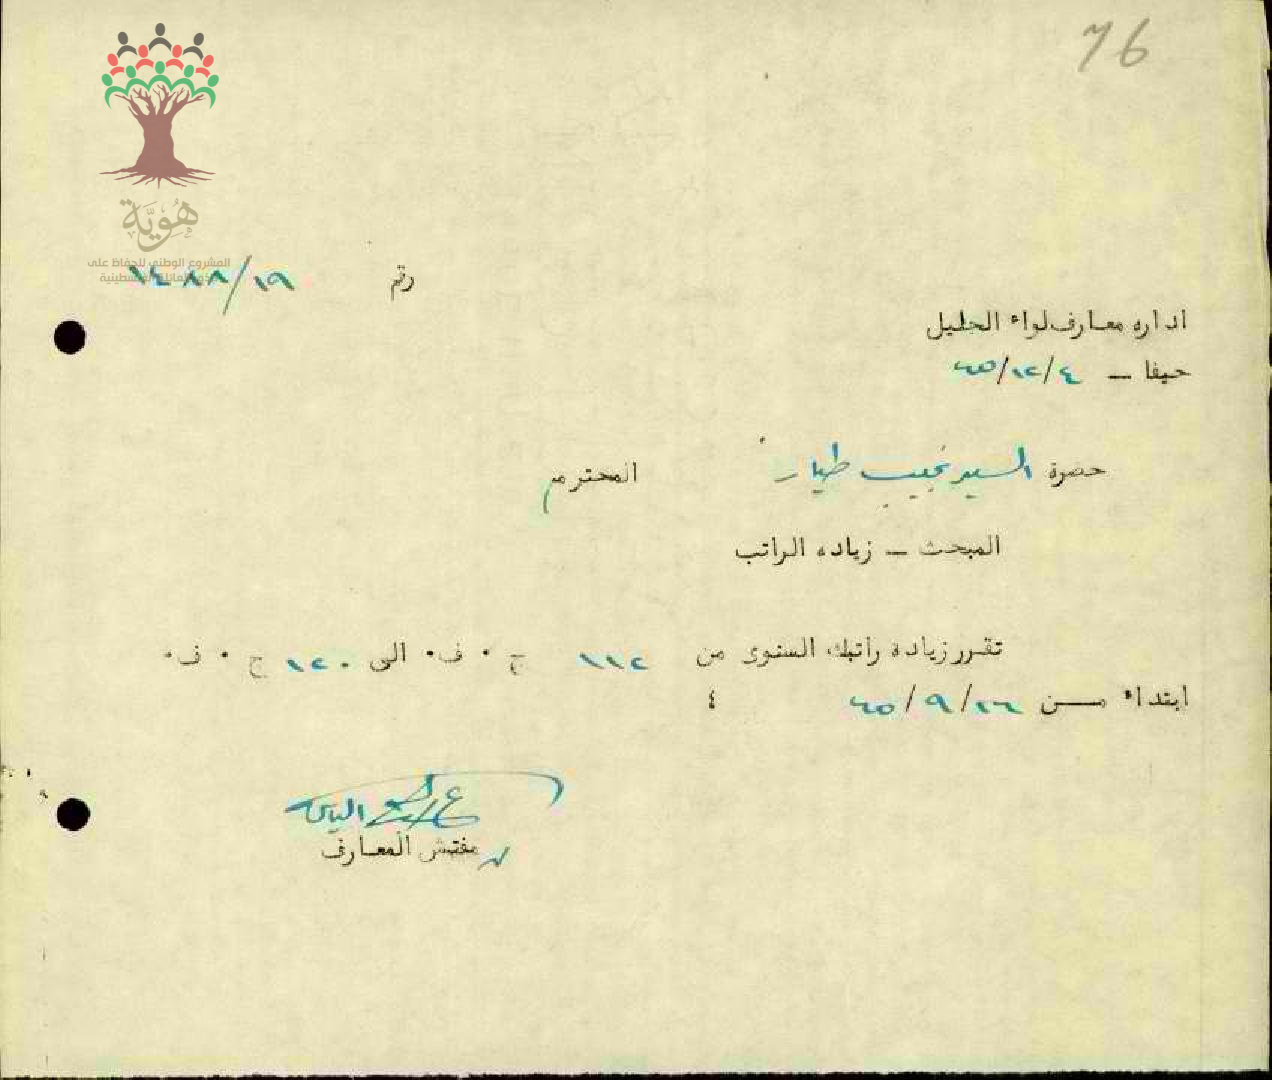 76
هُوِيَّة
المشروع الوطني للحفاظ على
رقم ١٤٨٨/١٩
اداره معارف لواء الجليل
حيفا – ٤/١٢/٤٥
حضرة السيد نجيب طيار المحترم
المبحث – زياده الراتب
تقرر زيادة راتبك السنوى من ١١٢ ج٠ ف٠ الى ١٢٠ ج٠ ف٠
ابتداء مـن ٢٦/٩/٤٥ ٤
الياس
مفتش المعارف